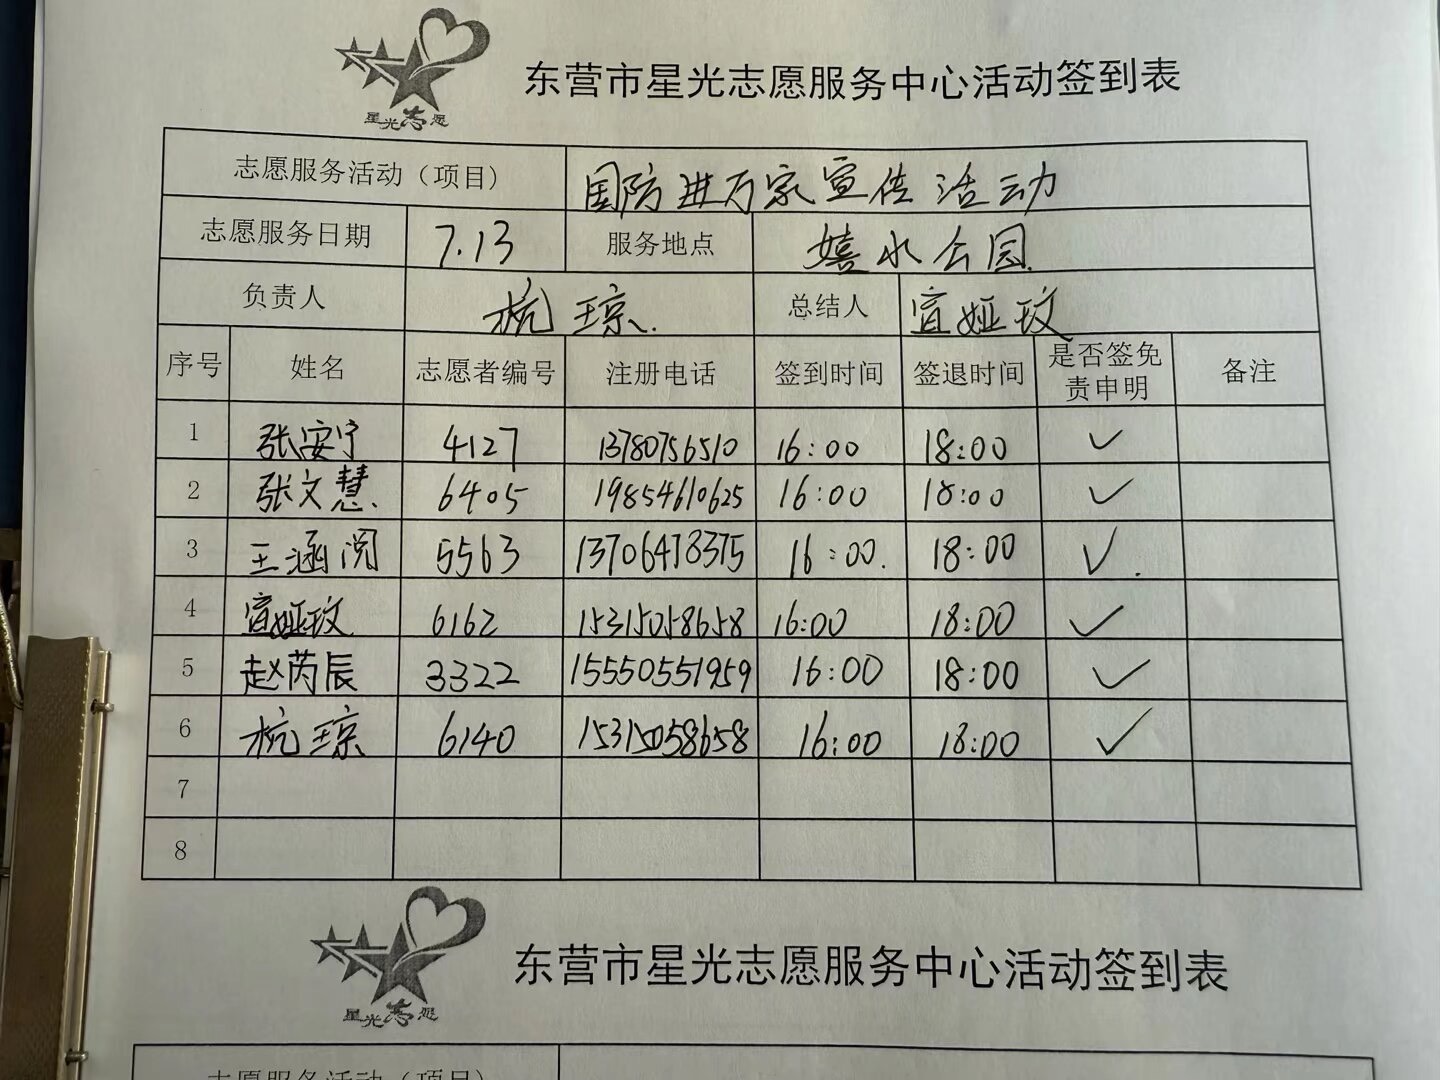 星光志愿
东营市星光志愿服务中心活动签到表
志愿服务活动（项目） 国防进万家宣传活动
志愿服务日期 7.13 服务地点 嬉水公园
负责人 杭琼 总结人 宣娅玟
序号 姓名 志愿者编号 注册电话 签到时间 签退时间 是否签免责申明 备注
1 张安宁 4127 13780756510 16:00 18:00 ✓
2 张文慧 6405 19854610625 16:00 18:00 ✓
3 王涵阅 5563 13706478375 16:00 18:00 ✓
4 宣娅玟 6162 15315058658 16:00 18:00 ✓
5 赵芮辰 3322 15550551959 16:00 18:00 ✓
6 杭琼 6140 15315058658 16:00 18:00 ✓
7
8
星光志愿
东营市星光志愿服务中心活动签到表
志愿服务活动（项目）